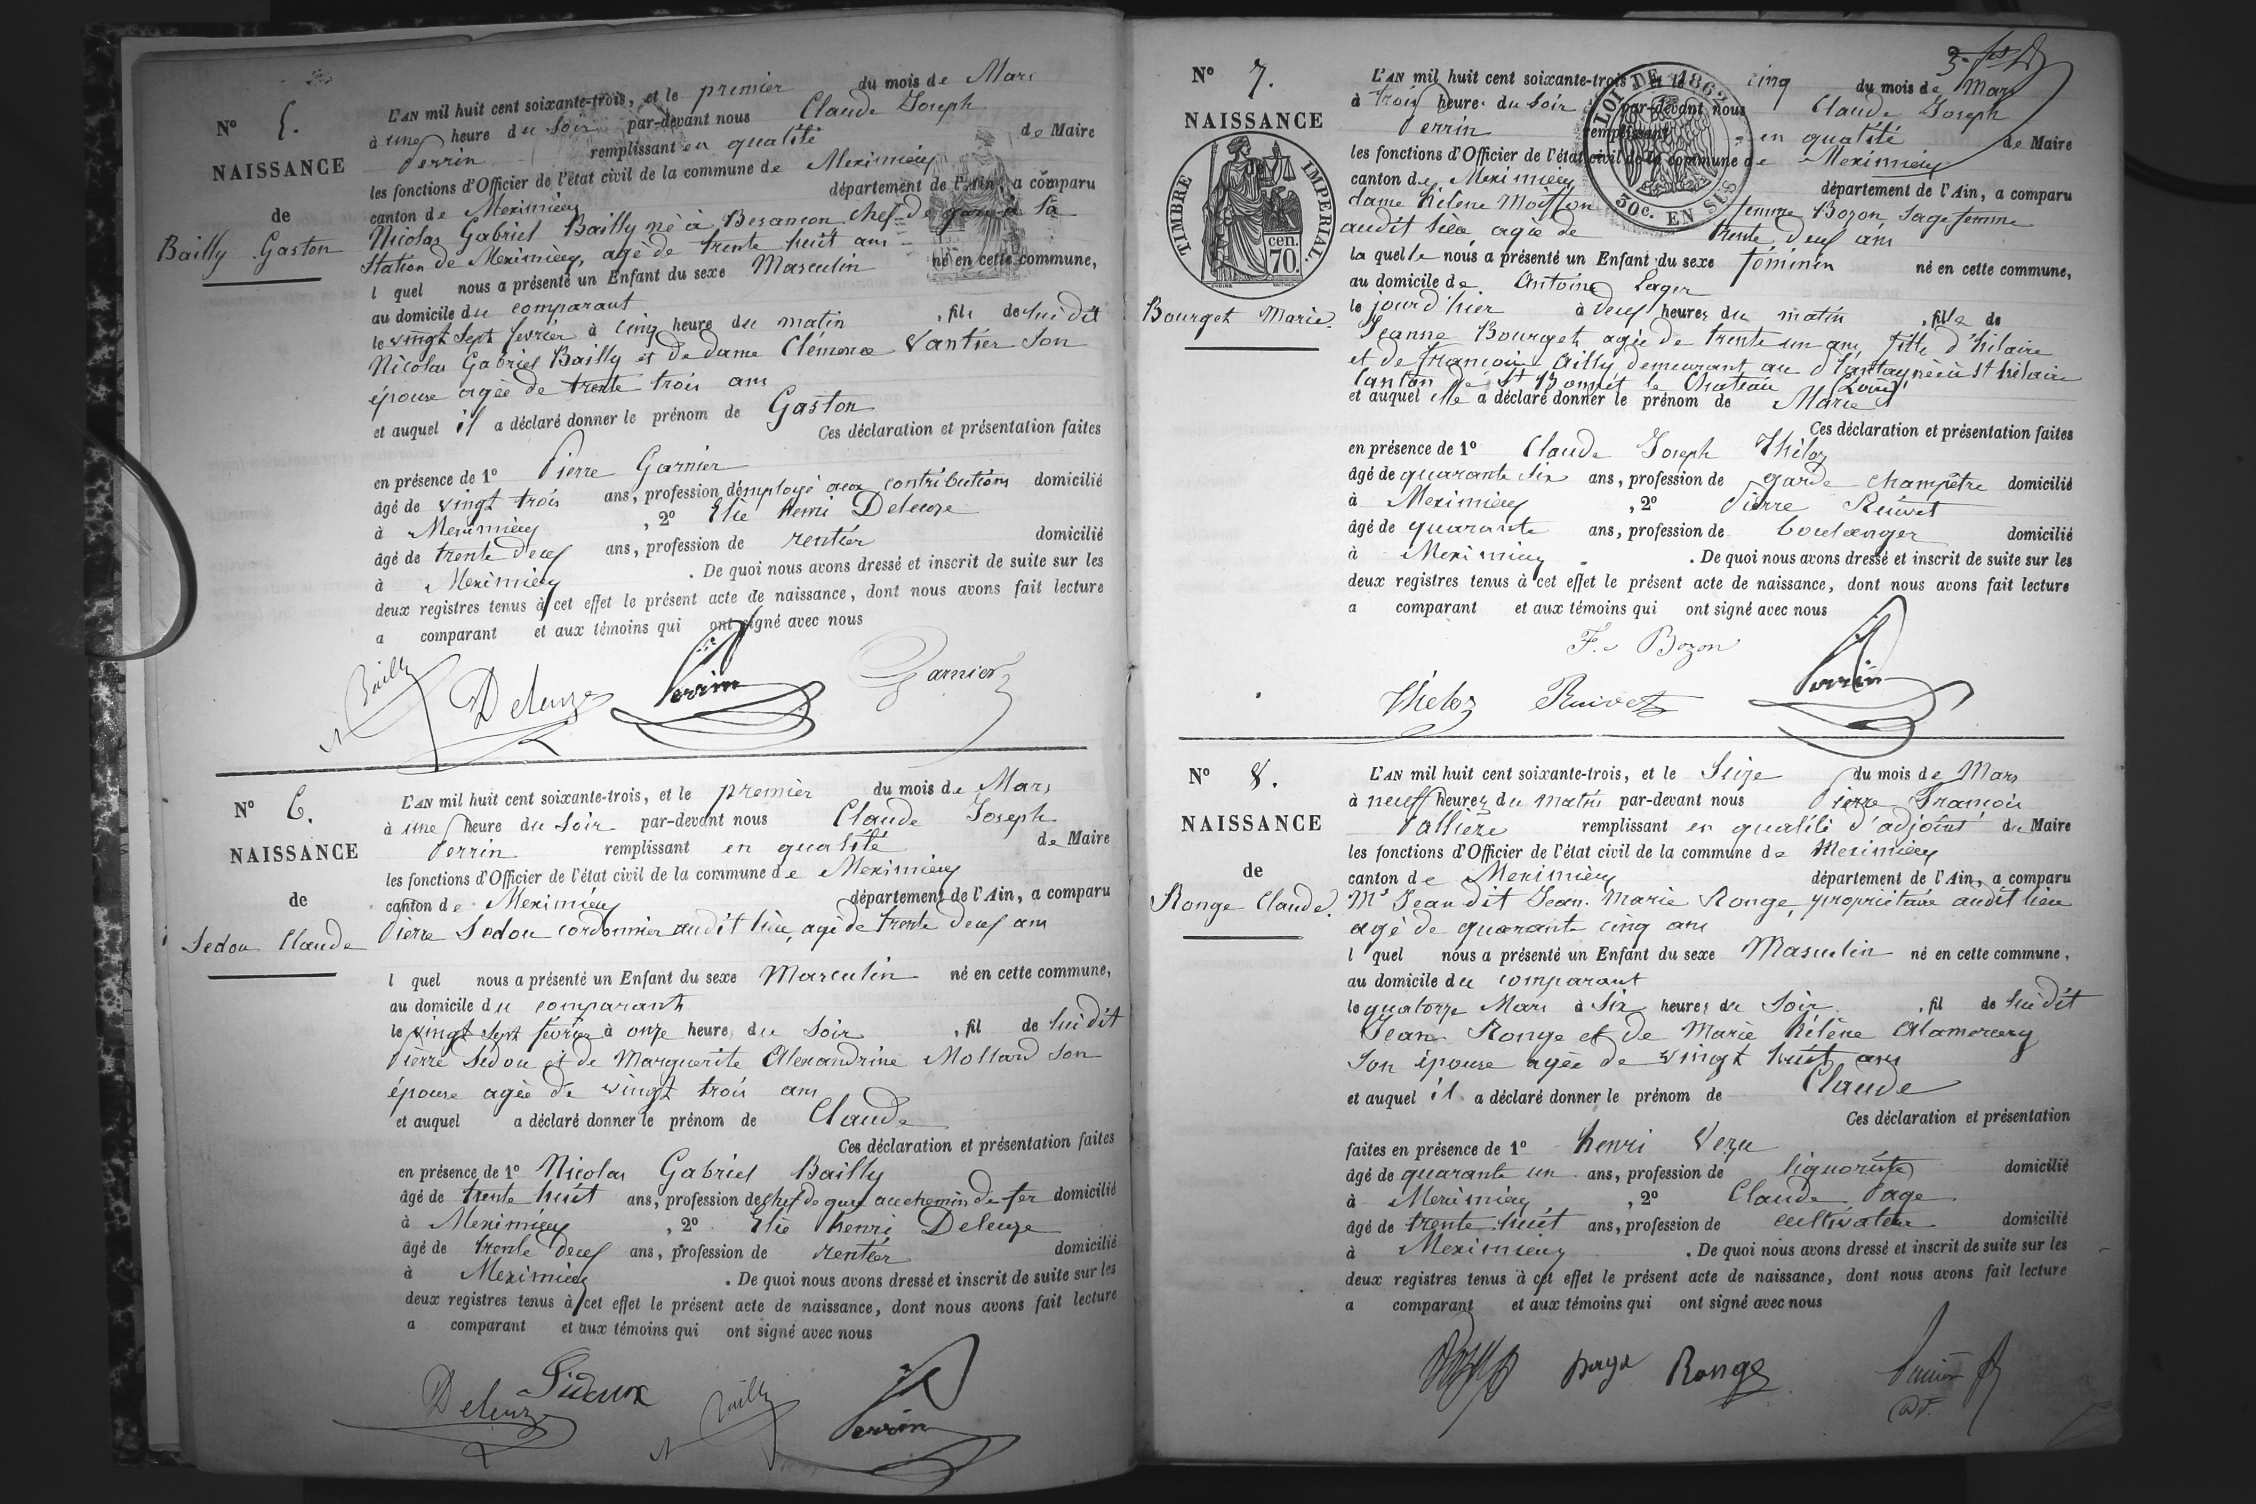 N° 5.
NAISSANCE
de
Bailly Gaston
L'AN mil huit cent soixante-trois, et le premier du mois de Mars
à une heure du soir par-devant nous Claude Joseph
Perrin remplissant en qualité de Maire
les fonctions d'Officier de l'état civil de la commune de Meximieux
canton de Meximieux département de l'Ain, a comparu
Nicolas Gabriel Bailly né à Besançon chef de gare à la
Station de Meximieux, agé de trente huit ans
l quel nous a présenté un Enfant du sexe Masculin né en cette commune,
au domicile du comparant
le vingt sept fevrier à cinq heure du matin , fils de lui dit
Nicolas Gabriel Bailly et de dame Clémence Vantier son
épouse agée de trente trois ans
et auquel il a déclaré donner le prénom de Gaston
Ces déclaration et présentation faites
en présence de 1° Pierre Garnier
âgé de vingt trois ans, profession d'employé aux contributions domicilié
à Meximieux , 2° Elie henri Deleuze
âgé de trente deux ans, profession de rentier domicilié
à Meximieux . De quoi nous avons dressé et inscrit de suite sur les
deux registres tenus à cet effet le présent acte de naissance, dont nous avons fait lecture
a comparant et aux témoins qui ont signé avec nous
N Bailly Deleuze Perrin Garnier
N° 6.
NAISSANCE
de
Sedou Claude
L'AN mil huit cent soixante-trois, et le premier du mois de Mars
à une heure du soir par-devant nous Claude Joseph
Perrin remplissant en qualité de Maire
les fonctions d'Officier de l'état civil de la commune de Meximieux
canton de Meximieux département de l'Ain, a comparu
Pierre Sedou cordonnier audit lieu, agé de trente deux ans
l quel nous a présenté un Enfant du sexe Masculin né en cette commune,
au domicile du comparant
le vingt sept fevrier à onze heure du soir , fil de lui dit
Pierre Sedou et de Marguerite Alexandrine Mollard son
épouse agée de vingt trois ans
et auquel a déclaré donner le prénom de Claude
Ces déclaration et présentation faites
en présence de 1° Nicolas Gabriel Bailly
âgé de trente huit ans, profession de chef de gare au chemin de fer domicilié
à Meximieux , 2° Elie henri Deleuze
âgé de trente deux ans, profession de rentier domicilié
à Meximieux . De quoi nous avons dressé et inscrit de suite sur les
deux registres tenus à cet effet le présent acte de naissance, dont nous avons fait lecture
a comparant et aux témoins qui ont signé avec nous
Deleuze N Bailly Perrin
N° 7.
NAISSANCE
TIMBRE IMPERIAL.
cen.
70.
Bourget Marie.
LOI DE 1862
50c. EN SUS
L'AN mil huit cent soixante-trois et le cinq du mois de Mars
à trois heure du soir par-devant nous Claude Joseph
Perrin remplissant en qualité de Maire
les fonctions d'Officier de l'état civil de la commune de Meximieux
canton de Meximieux département de l'Ain, a comparu
dame hélène Moisson femme Bozon sage femme
audit lieu agée de trente deux ans
la quelle nous a présenté un Enfant du sexe féminin né en cette commune,
au domicile de Antoine Lager
le jour d'hier à deux heures du matin , fille de
Jeanne Bourget agée de trente un ans, fille d'hilaire
et de françoise Ailly demeurant au St hilaire
Canton de St Bonnet le Chateau (Loire)
et auquel elle a déclaré donner le prénom de Marie
Ces déclaration et présentation faites
en présence de 1° Claude Joseph Théloz
âgé de quarante six ans, profession de garde champêtre domicilié
à Meximieux , 2° Pierre Ruivet
âgé de quarante ans, profession de boulanger domicilié
à Meximieux . De quoi nous avons dressé et inscrit de suite sur les
deux registres tenus à cet effet le présent acte de naissance, dont nous avons fait lecture
a comparant et aux témoins qui ont signé avec nous
F. Bozon
Théloz Ruivet Perrin
N° 8.
NAISSANCE
de
Ronge Claude.
L'AN mil huit cent soixante-trois, et le seize du mois de Mars
à neuf heures du matin par-devant nous Pierre François
Pallière remplissant en qualité d'adjoint de Maire
les fonctions d'Officier de l'état civil de la commune de Meximieux
canton de Meximieux département de l'Ain, a comparu
Mr Jean dit Jean-Marie Ronge, propriétaire audit lieu
agé de quarante cinq ans
l quel nous a présenté un Enfant du sexe Masculin né en cette commune,
au domicile du comparant
le quatorze Mars à six heures du soir , fil de lui dit
Jean Ronge et de Marie hélène Alamercery
son épouse agée de vingt huit ans
et auquel il a déclaré donner le prénom de Claude
Ces déclaration et présentation
faites en présence de 1° henri Vezu
âgé de quarante un ans, profession de liquoriste domicilié
à Meximieux , 2° Claude Page
âgé de trente huit ans, profession de cultivateur domicilié
à Meximieux . De quoi nous avons dressé et inscrit de suite sur les
deux registres tenus à cet effet le présent acte de naissance, dont nous avons fait lecture
a comparant et aux témoins qui ont signé avec nous
page Ronge